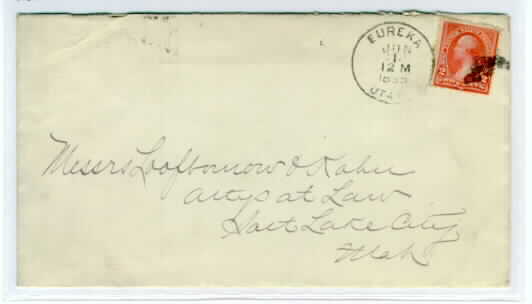 EUREKA
JUN
1
12 M
UTAH
Messrs Loofbourow & Kahn
Attys at Law
Salt Lake City
Utah